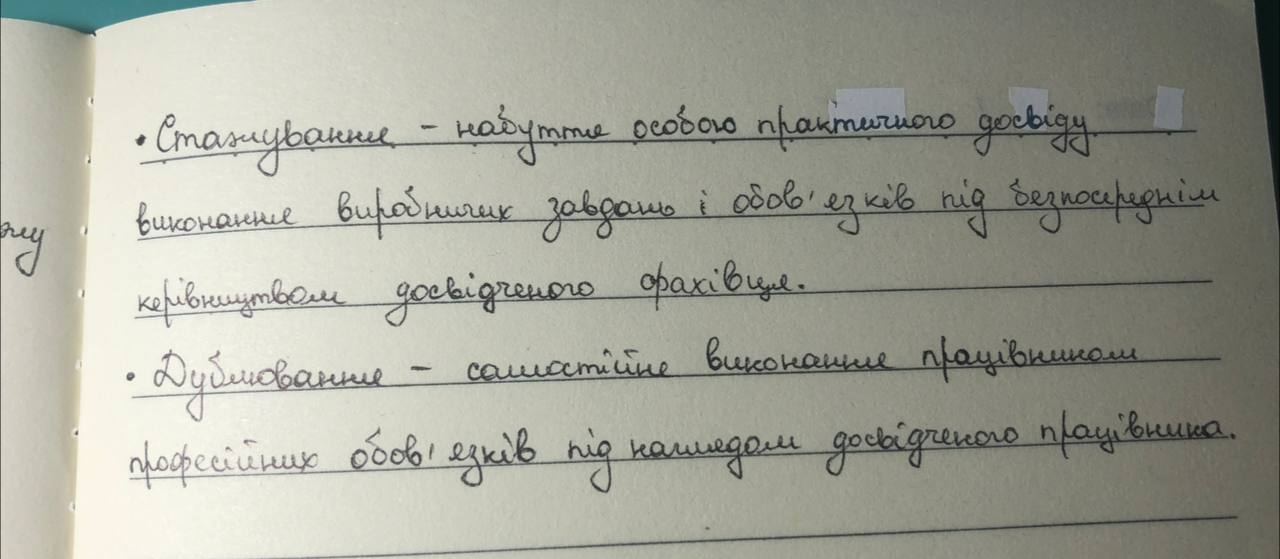 • Стажування – набуття особою практичного досвіду
виконання виробничих завдань і обов'язків під безпосереднім
керівництвом досвідченого фахівця.
• Дублювання – самостійне виконання працівником
професійних обов'язків під наглядом досвідченого працівника.